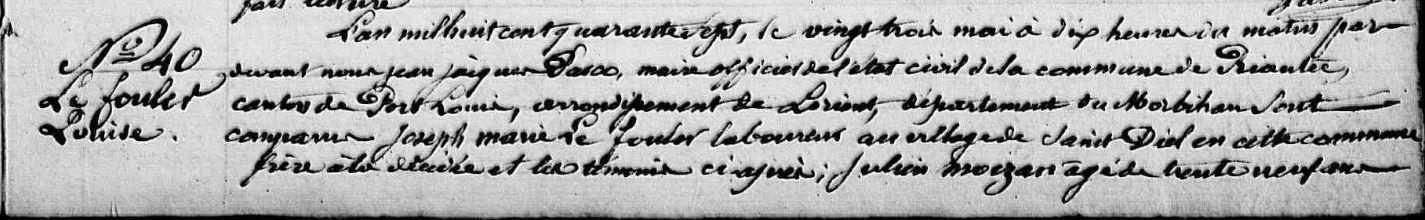 fait lecture
L'an mil huit cent quarante sept, le vingt trois mai à dix heures du matin par
N° 40
devant nous jean jacques Dasco, maire officier de l'état civil de la commune de Riantec,
Le fouler
canton de Port Louis, arrondissement de Lorient, département du Morbihan Sont
Louise.
comparus Joseph marie Le fouler laboureur au village de Saint Diel en cette commune
frère à la décédée et les témoins ci après; Julien moizan agé de trente neuf ans